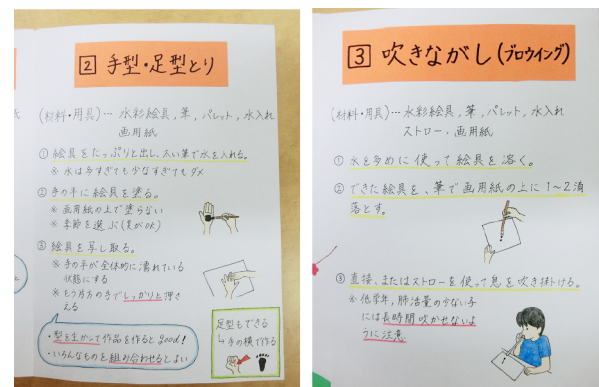 ② 手型・足型とり
(材料・用具)… 水彩絵具, 筆, パレット, 水入れ
画用紙
① 絵具をたっぷりと出し、太い筆で水を入れる。
※ 水は多すぎても少なすぎてもダメ
② 手の平に絵具を塗る。
※ 画用紙の上で塗らない
※ 季節を選ぶ(夏がOK)
③ 絵具を写し取る。
※ 手の平が全体的に濡れている
状態にする
※ もう片方の手でしっかりと押さ
える
・型を生かして作品を作るとgood!
・いろんなものを組み合わせるとよい
足型もできる
↳手の横で作る
③ 吹きながし(ブロウイング)
(材料・用具)… 水彩絵具, 筆, パレット, 水入れ
ストロー, 画用紙
① 水を多めに使って絵具を溶く。
② できた絵具を、筆で画用紙の上に1~2滴
落とす。
③ 直接、またはストローを使って息を吹き掛ける。
※ 低学年, 肺活量の少ない子
には長時間吹かせないよ
うに注意